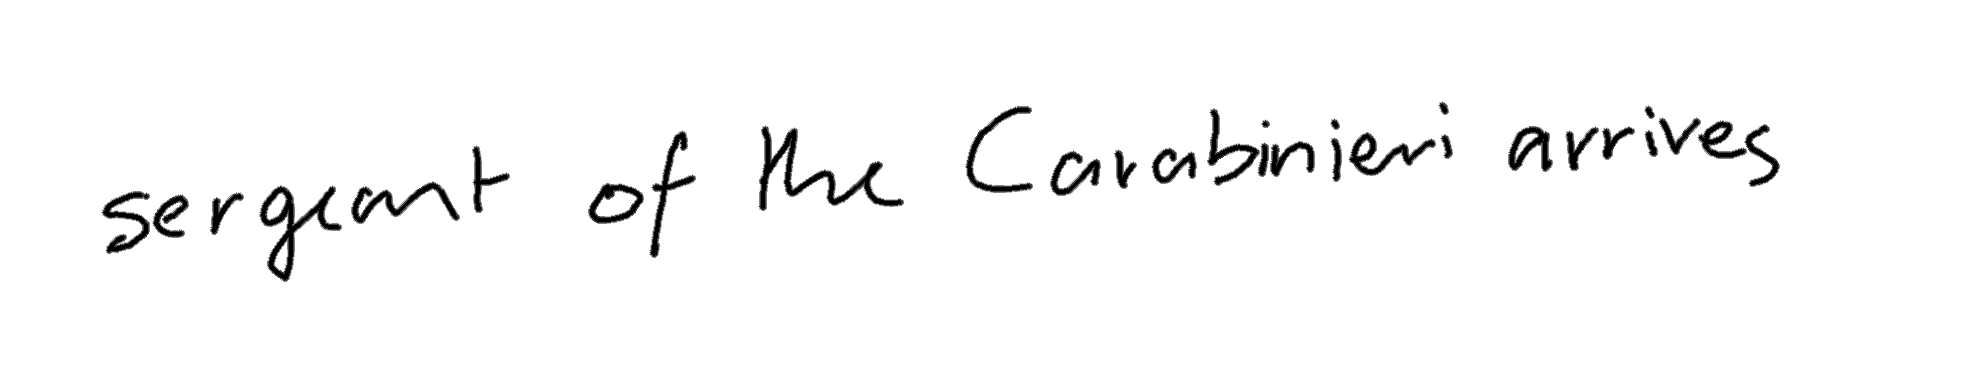 sergeant of the Carabinieri arrives